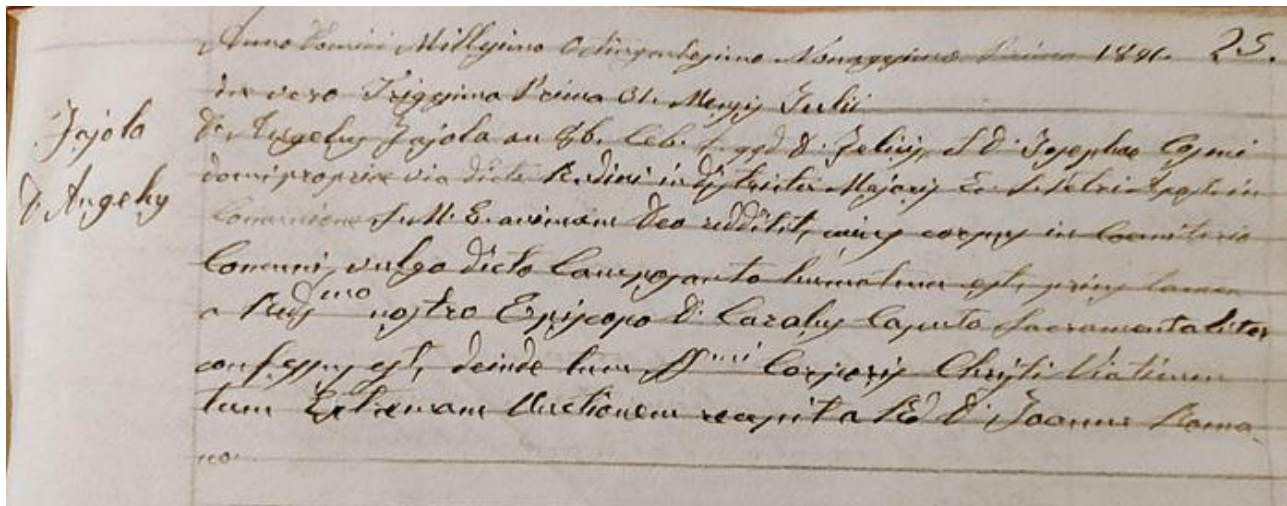 Anno Domini Millesimo Octingentesimo Nonagesimo Primo 1891. 25.
die vero Trigesima Prima 31. Mensis Julii
Jajola
D. Angelus
D. Angelus Jajola an 76. Celi. f. qqd D. Felicis, et D. Josephae Cosmi
domi propriae via dicta Rendini in districtu Majoris Ec. S. Petri Apostoli in
Comunione S. M. E. animam Deo reddidit, cuius corpus in Coemiterio
Comuni, vulgo dicto Camposanto humatum est, prius tamen
a Redsmo nostro Episcopo D. Carolus Caputo Sacramentaliter
confessus est, deinde tum SSmi Corporis Christi Viaticum
tum Extremam Unctionem recepit a Rd D. Joanne Roma-
no